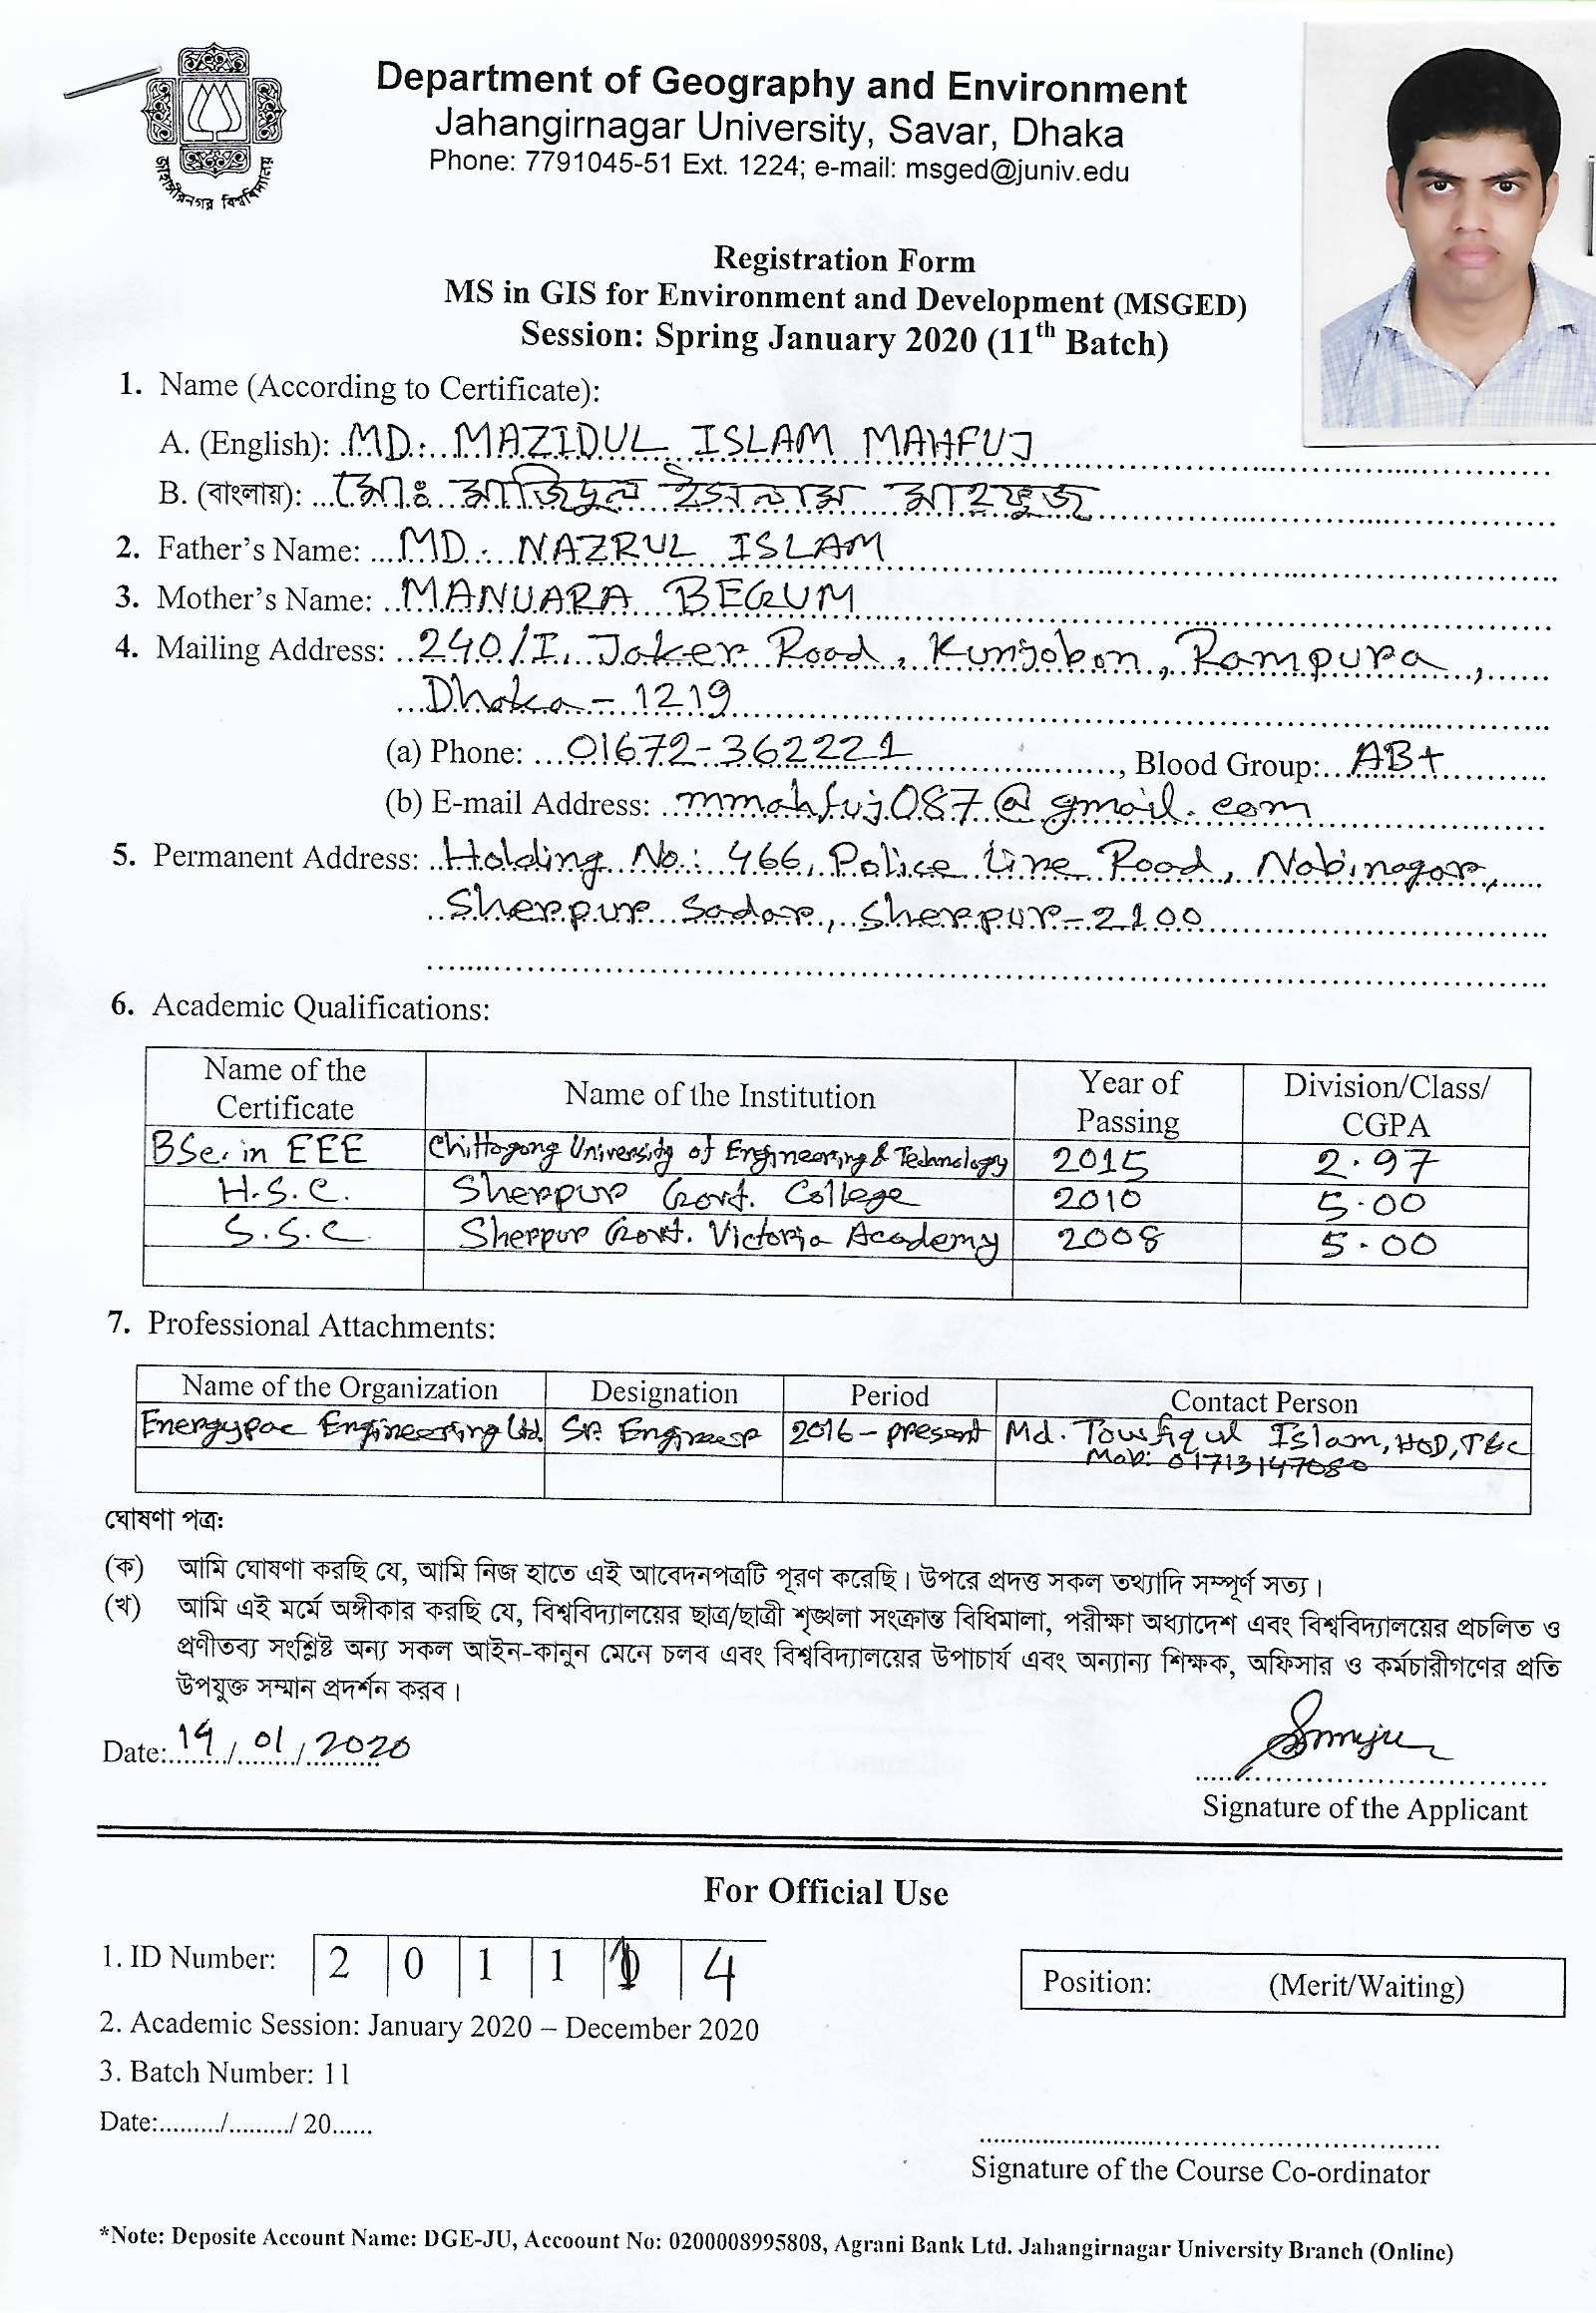 জাহাঙ্গীরনগর বিশ্ববিদ্যালয়
Department of Geography and Environment
Jahangirnagar University, Savar, Dhaka
Phone: 7791045-51 Ext. 1224; e-mail: msged@juniv.edu
Registration Form
MS in GIS for Environment and Development (MSGED)
Session: Spring January 2020 (11th Batch)
1. Name (According to Certificate):
A. (English): MD. MAZIDUL ISLAM MAHFUJ
B. (বাংলায়): মোঃ মাজিদুল ইসলাম মাহফুজ
2. Father's Name: MD. NAZRUL ISLAM
3. Mother's Name: MANUARA BEGUM
4. Mailing Address: 240/I, Jaker Road, Kunjobon, Rampura,
Dhaka - 1219
(a) Phone: 01672-362221, Blood Group: AB+
(b) E-mail Address: mmahfuj087@gmail.com
5. Permanent Address: Holding No: 466, Police Line Road, Nabinagar,
Sherpur Sadar, Sherpur-2100
6. Academic Qualifications:
Name of the Certificate Name of the Institution Year of Passing Division/Class/CGPA
BSc. in EEE Chittagong University of Engineering & Technology 2015 2.97
H.S.C. Sherpur Govt. College 2010 5.00
S.S.C Sherpur Govt. Victoria Academy 2008 5.00
7. Professional Attachments:
Name of the Organization Designation Period Contact Person
Energypac Engineering Ltd. Sr. Engineer 2016 - present Md. Towfiqul Islam, HOD, T&C
Mob: 01713147080
ঘোষণা পত্র:
(ক) আমি ঘোষণা করছি যে, আমি নিজ হাতে এই আবেদনপত্রটি পূরণ করেছি। উপরে প্রদত্ত সকল তথ্যাদি সম্পূর্ণ সত্য।
(খ) আমি এই মর্মে অঙ্গীকার করছি যে, বিশ্ববিদ্যালয়ের ছাত্র/ছাত্রী শৃঙ্খলা সংক্রান্ত বিধিমালা, পরীক্ষা অধ্যাদেশ এবং বিশ্ববিদ্যালয়ের প্রচলিত ও
প্রণীতব্য সংশ্লিষ্ট অন্য সকল আইন-কানুন মেনে চলব এবং বিশ্ববিদ্যালয়ের উপাচার্য এবং অন্যান্য শিক্ষক, অফিসার ও কর্মচারীগণের প্রতি
উপযুক্ত সম্মান প্রদর্শন করব।
Date: 14/01/2020
Signature of the Applicant
For Official Use
1. ID Number: 2 0 1 1 1 4
Position: (Merit/Waiting)
2. Academic Session: January 2020 – December 2020
3. Batch Number: 11
Date:........./........./ 20......
Signature of the Course Co-ordinator
*Note: Deposite Account Name: DGE-JU, Accoount No: 0200008995808, Agrani Bank Ltd. Jahangirnagar University Branch (Online)